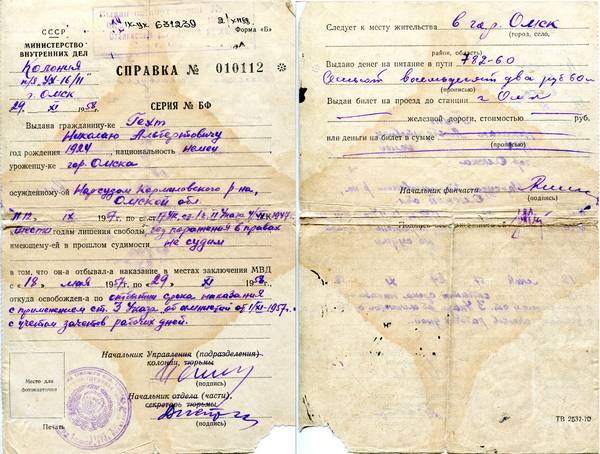 IX-ук. 631239
2/XII 58
СССР
Форма «Б»
МИНИСТЕРСТВО
ВНУТРЕННИХ ДЕЛ
Колония
п/я УХ-16/11
г. Омск
29. XI 1958.
СПРАВКА № 010112 *
СЕРИЯ № БФ
Выдана гражданину-ке Гехт
Николаю Альбертовичу
год рождения 1924, национальность немец
уроженцу-ке гор. Омска
осужденному-ой Нарсудом Кормиловского р-на,
Омской обл.
IX 1957. по с. ст.
шести годам лишения свободы без поражения в правах
имеющей-ей в прошлом судимости не судим
в том, что он-а отбывал-а наказание в местах заключения МВД
с «18» мая 1957г. по «29» XI 1958.
откуда освобожден-а по отбытии срока наказания
с применением ст. 3 Указа об амнистии от 1/XI-1957г.
с учетом зачетов рабочих дней.
Начальник Управления (подразделения)
колонии, тюрьмы
(подпись)
Начальник отдела (части),
секретарь тюрьмы
(подпись)
Место для
фотокарточки
Печать
Следует к месту жительства в гор. Омск
(город, село,
район, область)
Выдано денег на питание в пути 782-60
Семьсот восемьдесят два руб 60
(прописью)
Выдан билет на проезд до станции г Омск
железной дороги, стоимостью руб.
или деньги на билет в сумме
(прописью)
Начальник финчасти
(подпись)
(подпись)
ТВ 2532-70